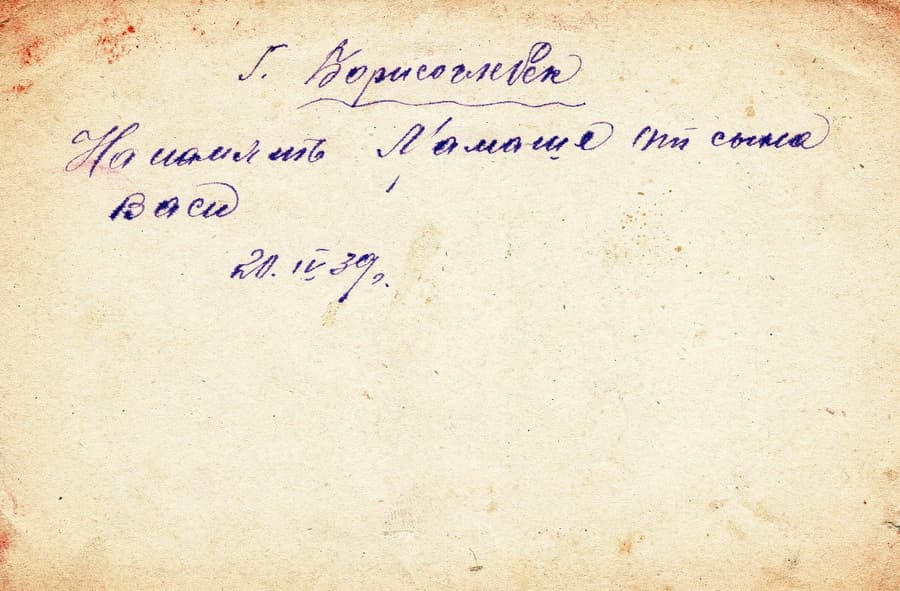 г. Борисоглебск
На память Мамаше от сына
Васи
20. IV 39 г.